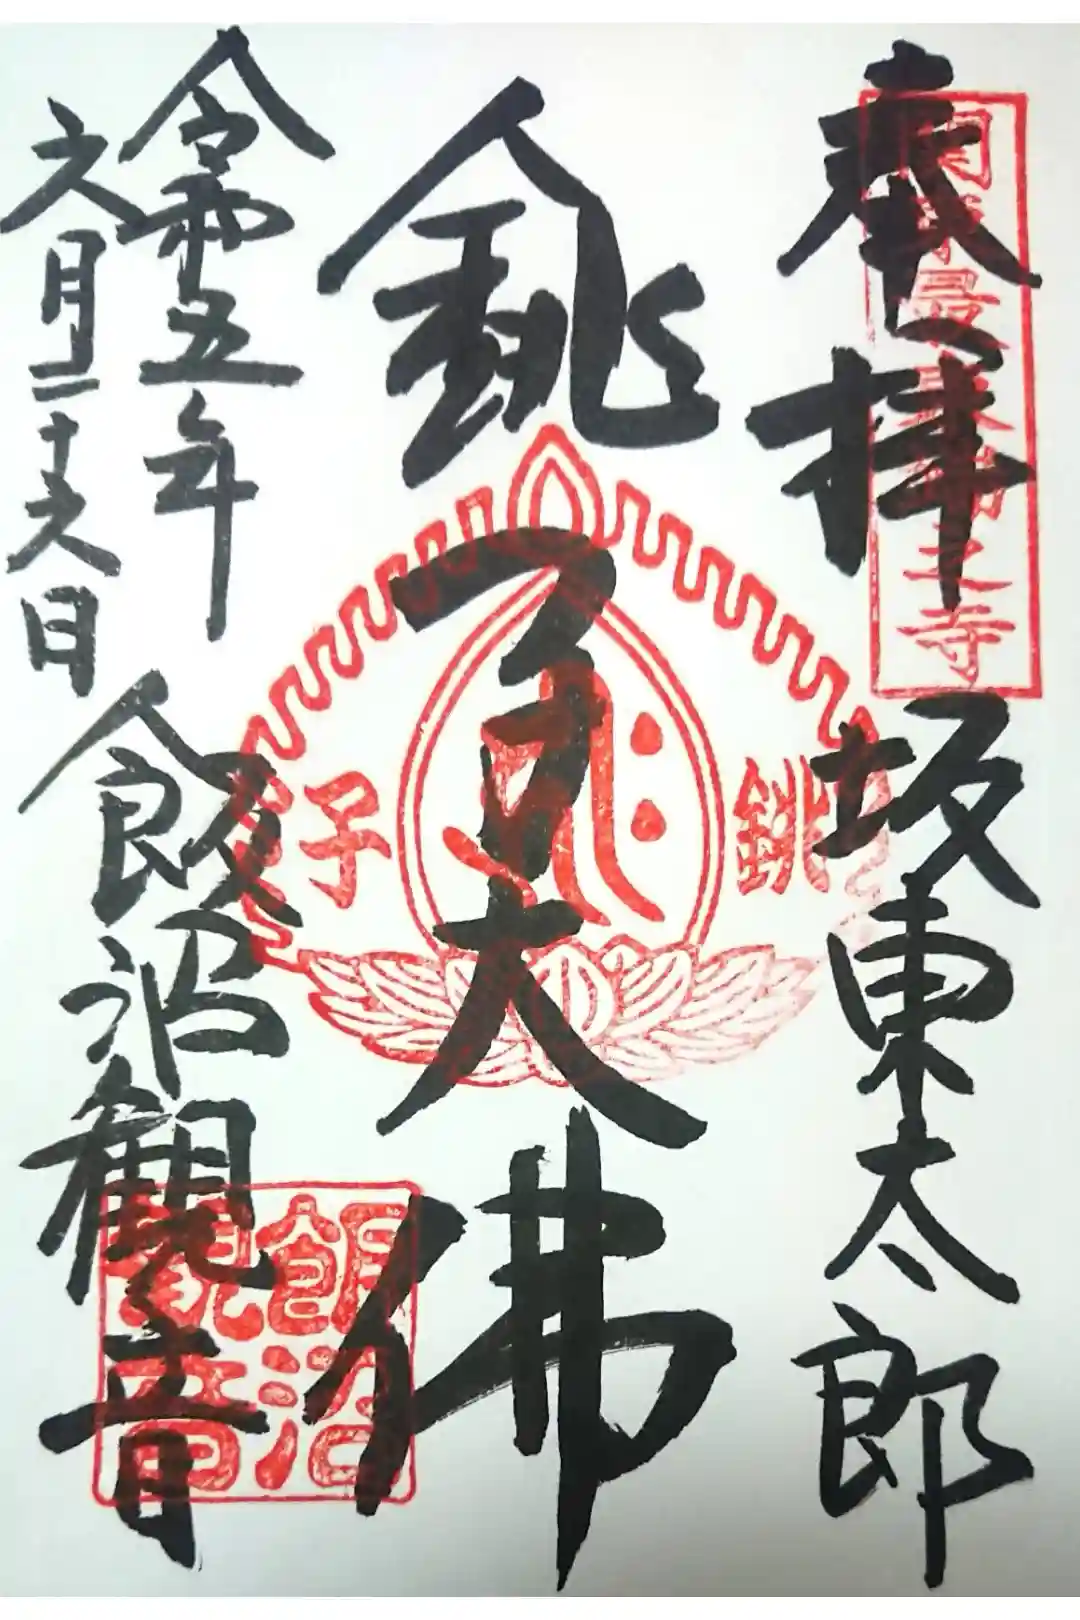 奉拝
坂東太郎
関東最東端之寺
銚子大佛
銚子
令和五年
六月二十六日
飯沼観音
飯沼
観音